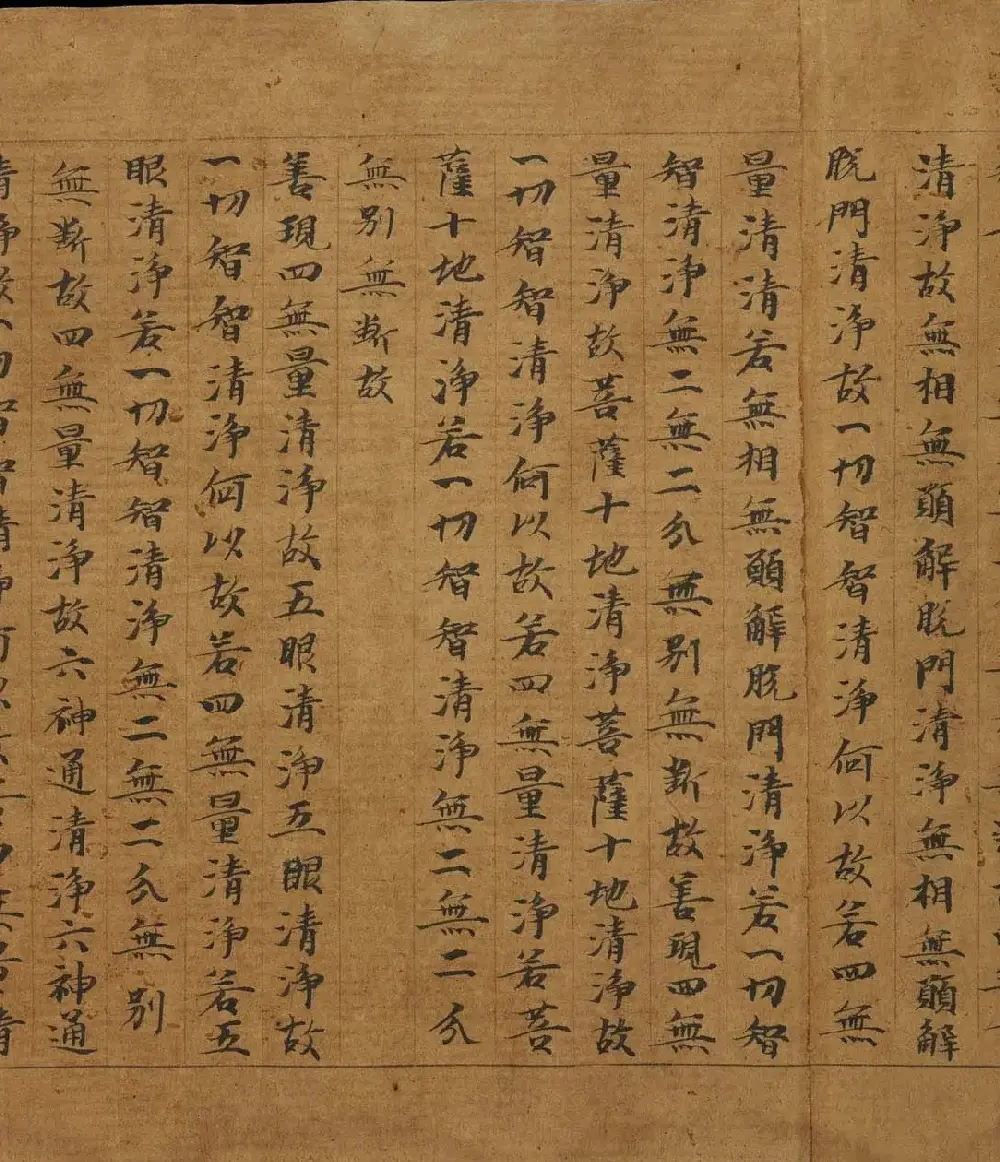 清淨故無相無願解脫門清淨無相無願解
脫門清淨故一切智智清淨何以故若四無
量清清若無相無願解脫門清淨若一切智
智清淨無二無二分無別無斷故善現四無
量清淨故菩薩十地清淨菩薩十地清淨故
一切智智清淨何以故若四無量清淨若菩
薩十地清淨若一切智智清淨無二無二分
無別無斷故
善現四無量清淨故五眼清淨五眼清淨故
一切智智清淨何以故若四無量清淨若五
眼清淨若一切智智清淨無二無二分無別
無斷故四無量清淨故六神通清淨六神通
清淨故一切智智清淨何以故若四無量清